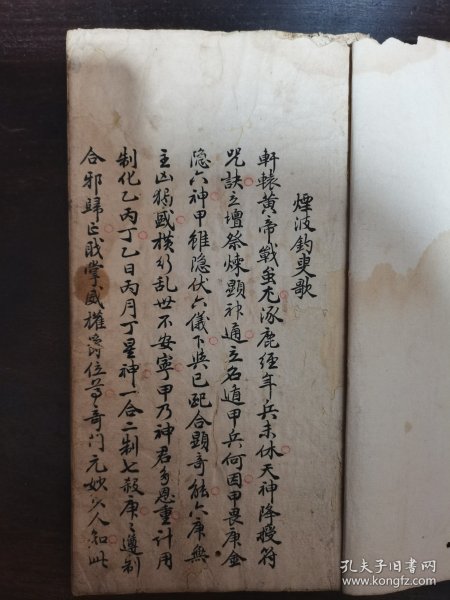 煙波釣叟歌
軒轅黃帝戰蚩尤涿鹿經年兵未休天神降授符
咒訣立壇祭煉顯神通立名遁甲兵何因甲畏庚金
隐六神甲雖隐伏六儀下與己配合顯奇能六庚無
主凶猖威橫行乱世不安寧甲乃神君多恩重计用
制化乙丙丁乙日丙月丁星神一合二制七殺庚庚遵制
合邪歸正戝掌威權爵位尊奇门元妙少人知此
孔夫子旧书网
www.kongfz.com